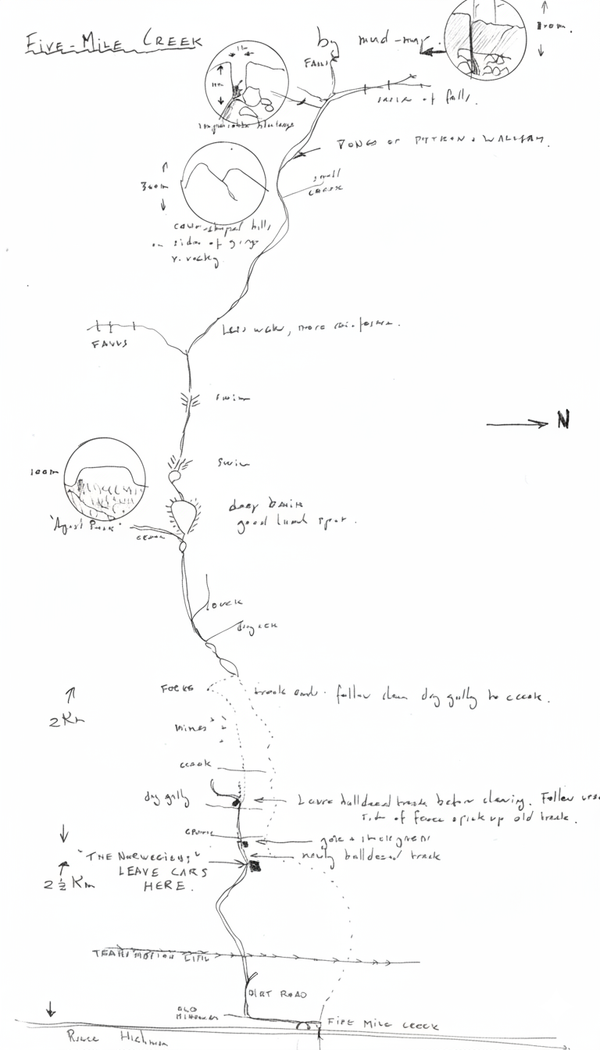 FIVE-MILE CREEK
by mud-map.
FALLS
100m.
series of falls.
BONES OF PYTHON & WALLABY.
small
creek
300m
cone-shaped hills
on sides of gorge
v. rocky
Less water, more rainforest.
FALLS
swim
N
swim
100m
deep basin
good lunch spot.
creek
creek
dry ck
FORKS
track ends. follow clear dry gully to creek.
2 Km
mines
creek
dry gully
Leave bulldozed track before clearing. Follow
side of fence & pick up old track.
newly bulldozed track
"THE NORWEGIENS"
LEAVE CARS
HERE.
2½ Km
TRANSMOTION LINE
DIRT ROAD
OLD
HIGHWAY
FIVE MILE CREEK
Bruce Highway